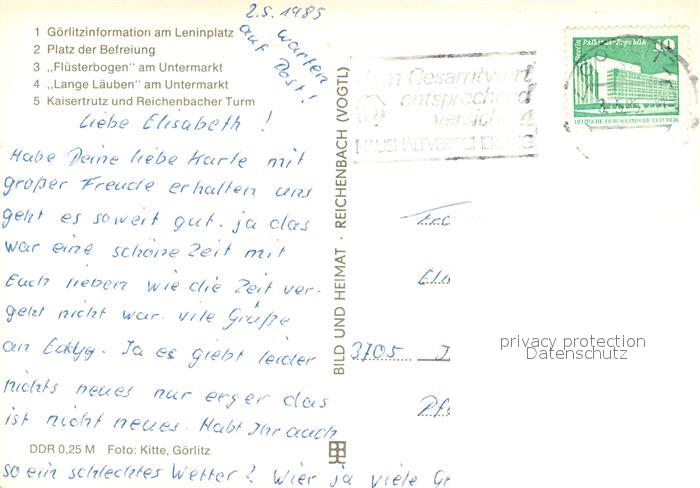 2.5.1985
warten
auf Post!
1 Görlitzinformation am Leninplatz
2 Platz der Befreiung
3 „Flüsterbogen" am Untermarkt
4 „Lange Läuben" am Untermarkt
5 Kaisertrutz und Reichenbacher Turm
Liebe Elisabeth!
Habe Deine liebe Karte mit
großer Freude erhalten uns
geht es soweit gut. ja das
war eine schöne Zeit mit
Euch lieben wie die Zeit ver-
geht nicht war. vile Grüße
an . Ja es giebt leider
nichts neues nur erger das
ist nicht neues. Habt Ihr auch
so ein schlechtes Wetter? Wier ja viele Gr
DDR 0,25 M Foto: Kitte, Görlitz
BILD UND HEIMAT · REICHENBACH (VOGTL)
Gesamtwert
entsprechend
versichern
HAUSHALTVERSICHERUNG
Palast der Republik
10
DEUTSCHE DEMOKRATISCHE REPUBLIK
3705
privacy protection
Datenschutz